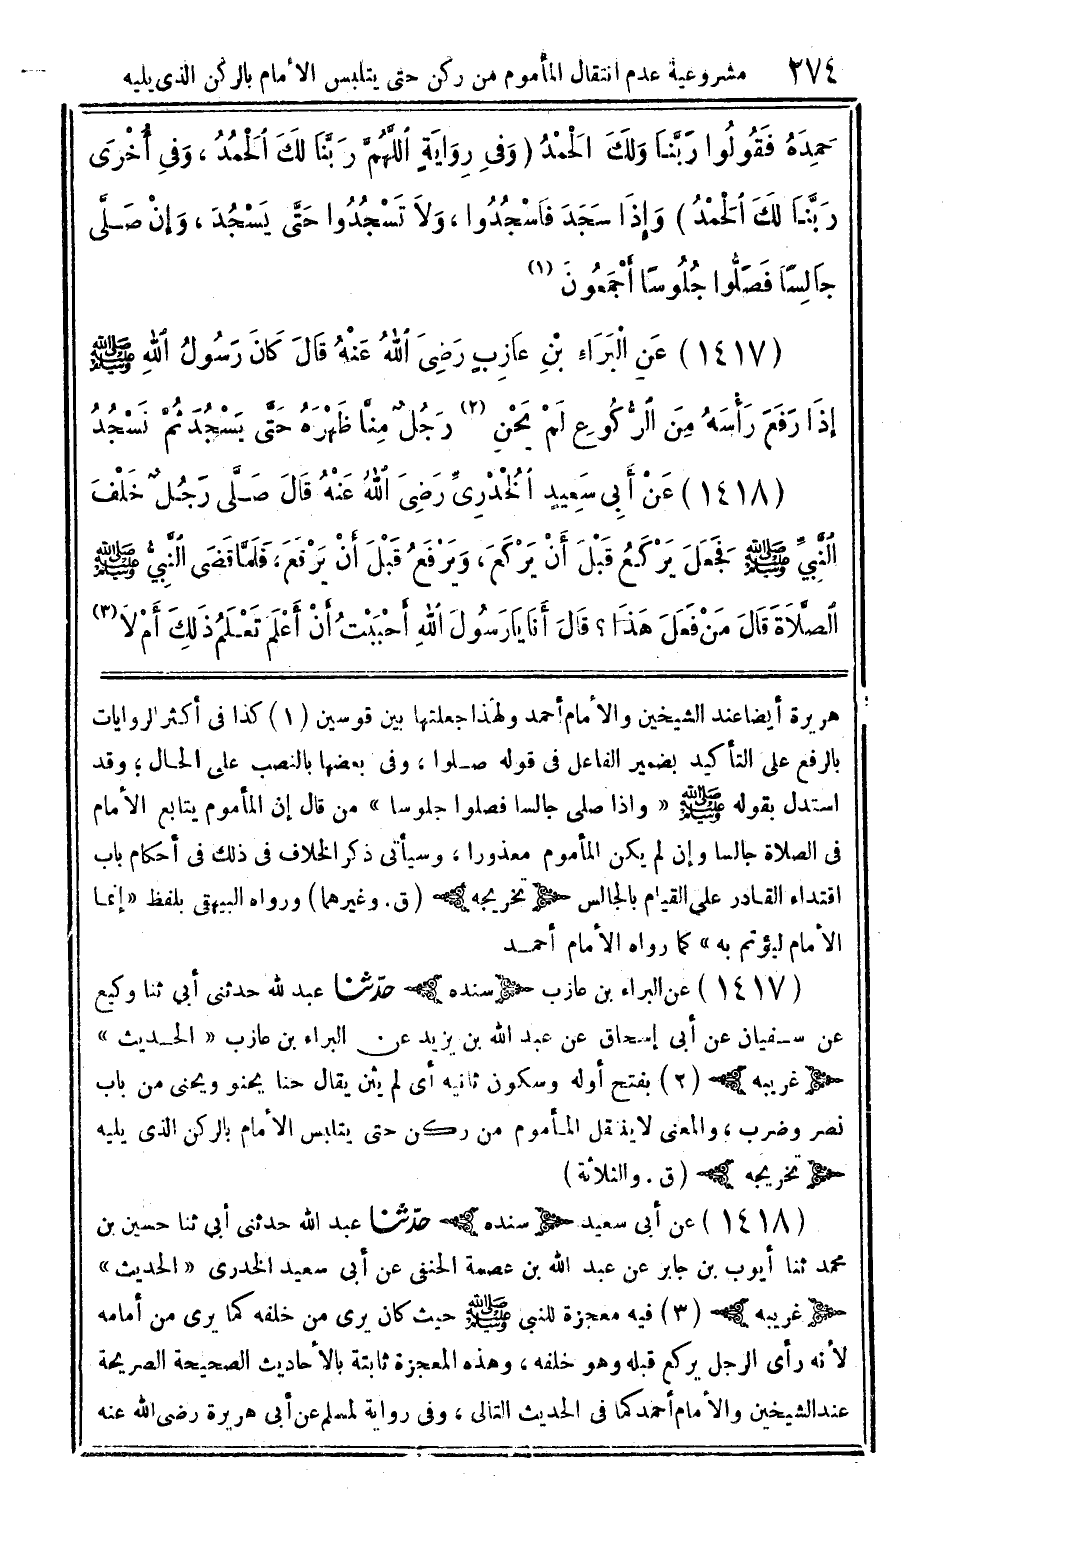 ٢٧٤ مشروعية عدم انتقال المأموم من ركن حتى يتلبس الأمام بالركن الذى يليه
حَمِدَهُ فَقُولُوا رَبَّنَا وَلَكَ الْحَمْدُ (وَفِى رِوَايَةٍ اللَّهُمَّ رَبَّنَا لَكَ الْحَمْدُ، وَفِى أُخْرَى
رَبَّنَا لَكَ الْحَمْدُ) وَإِذَا سَجَدَ فَاسْجُدُوا، وَلاَ تَسْجُدُوا حَتَّى يَسْجُدَ، وَإِنْ صَلَّى
جَالِسًا فَصَلُّوا جُلُوسًا أَجْمَعُونَ (١)
(١٤١٧) عَنِ الْبَرَاءِ بْنِ عَازِبٍ رَضِىَ اللهُ عَنْهُ قَالَ كَانَ رَسُولُ اللهِ ﷺ
إِذَا رَفَعَ رَأْسَهُ مِنَ الرُّكُوعِ لَمْ يَحْنِ (٢) رَجُلٌ مِنَّا ظَهْرَهُ حَتَّى يَسْجُدَ ثُمَّ نَسْجُدُ
(١٤١٨) عَنْ أَبِى سَعِيدٍ الْخُدْرِىِّ رَضِىَ اللهُ عَنْهُ قَالَ صَلَّى رَجُلٌ خَلْفَ
النَّبِىِّ ﷺ فَجَعَلَ يَرْكَعُ قَبْلَ أَنْ يَرْكَعَ، وَيَرْفَعُ قَبْلَ أَنْ يَرْفَعَ، فَلَمَّا قَضَى النَّبِىُّ ﷺ
الصَّلاَةَ قَالَ مَنْ فَعَلَ هَذَا؟ قَالَ أَنَا يَارَسُولَ اللهِ أَحْبَبْتُ أَنْ أَعْلَمَ تَعْلَمُ ذَلِكَ أَمْ لاَ (٣)
هريرة أيضا عند الشيخين والأمام أحمد ولهذا جعلتها بين قوسين (١) كذا فى أكثر الروايات
بالرفع على التأكيد بضمير الفاعل فى قوله صلوا، وفى بعضها بالنصب على الحال؛ وقد
استدل بقوله ﷺ «واذا صلى جالسا فصلوا جلوسا» من قال إن المأموم يتابع الأمام
فى الصلاة جالسا وإن لم يكن المأموم معذورا، وسيأتى ذكر الخلاف فى ذلك فى أحكام باب
اقتداء القادر على القيام بالجالس تخريجه (ق. وغيرهما) ورواه البيهقى بلفظ «إنما
الأمام ليؤتم به» كما رواه الأمام أحمد
(١٤١٧) عن البراء بن عازب سنده حدّثنا عبد لله حدثنى أبي ثنا وكيع
عن سفيان عن أبى إسحاق عن عبد الله بن يزيد عن البراء بن عازب «الحديث»
غريبه (٢) بفتح أوله وسكون ثانيه أى لم يثن يقال حنا يحنو ويحنى من باب
نصر وضرب؛ والمعنى لاينتقل المأموم من ركن حتى يتلبس الأمام بالركن الذى يليه
تخريجه (ق. والثلاثة)
(١٤١٨) عن أبى سعيد سنده حدّثنا عبد الله حدثنى أبي ثنا حسين بن
محمد ثنا أيوب بن جابر عن عبد الله بن عصمة الحنفى عن أبى سعيد الخدرى «الحديث»
غريبه (٣) فيه معجزة للنبى ﷺ حيث كان يرى من خلفه كما يرى من أمامه
لأنه رأى الرجل يركع قبله وهو خلفه، وهذه المعجزة ثابتة بالأحاديث الصحيحة الصريحة
عند الشيخين والأمام أحمد كما فى الحديث التالى، وفى رواية لمسلم عن أبى هريرة رضى الله عنه